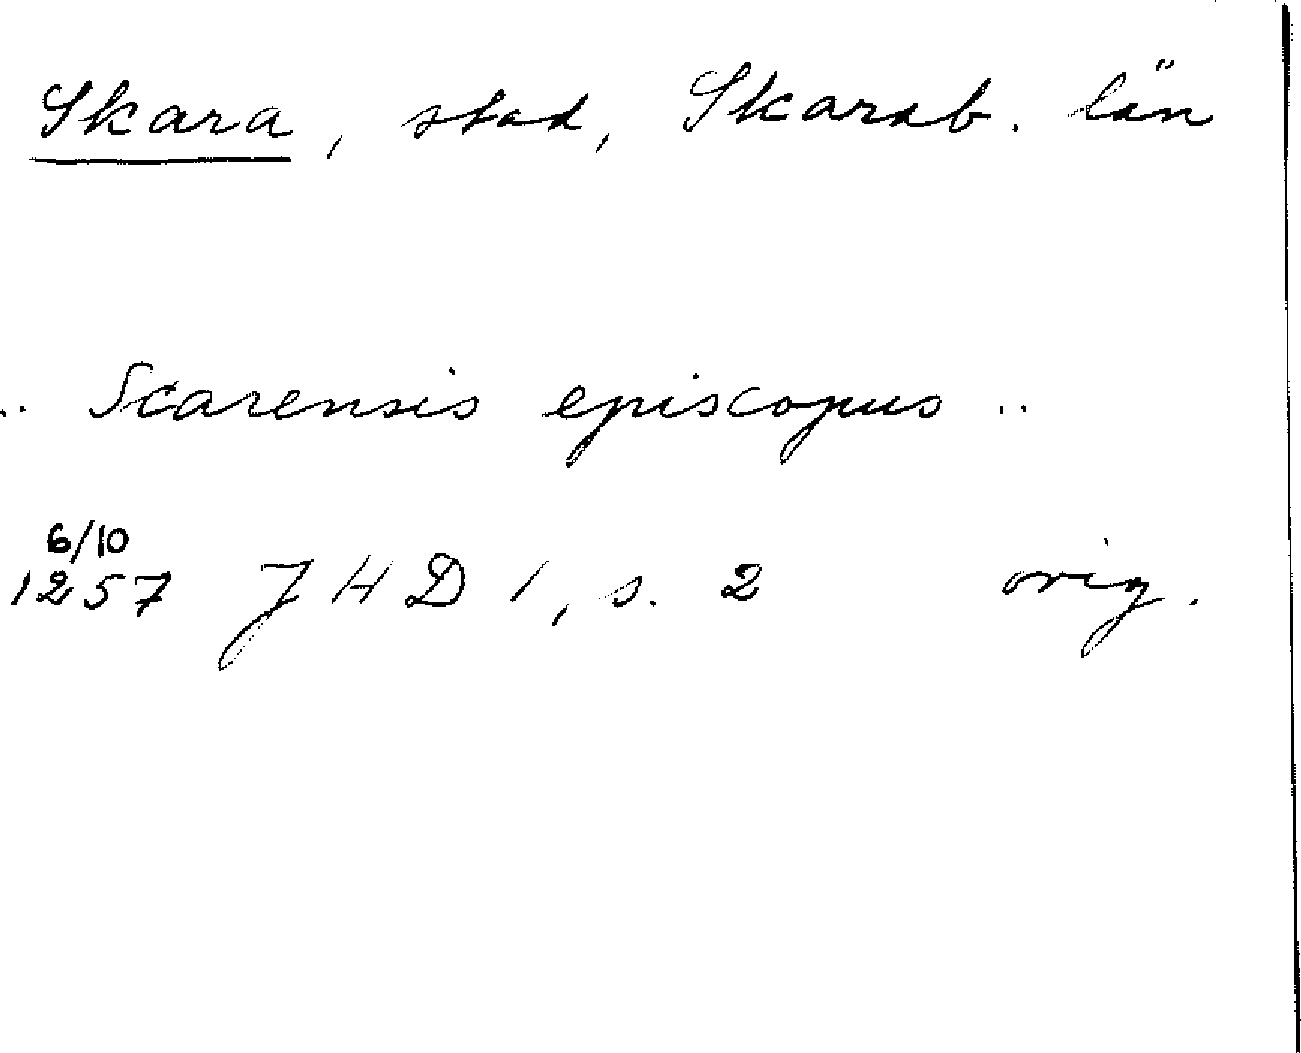 Skara, stad, Skarab. län
.. Scarensis episcopus ..
6/10
1257 JHD 1, s. 2 orig.